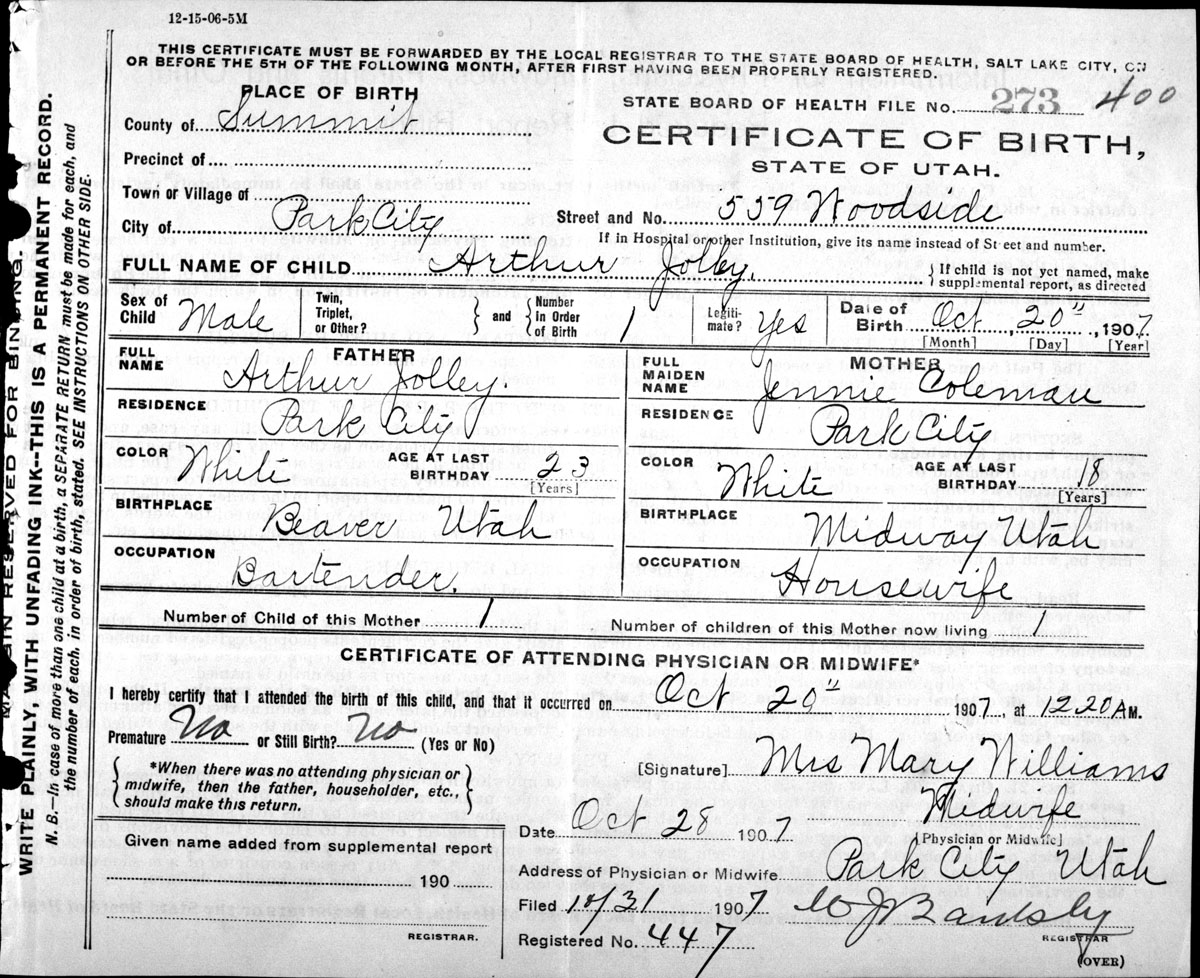 12-15-06-5M
THIS CERTIFICATE MUST BE FORWARDED BY THE LOCAL REGISTRAR TO THE STATE BOARD OF HEALTH, SALT LAKE CITY, ON
OR BEFORE THE 5TH OF THE FOLLOWING MONTH, AFTER FIRST HAVING BEEN PROPERLY REGISTERED.
PLACE OF BIRTH
STATE BOARD OF HEALTH FILE No. 273 400
County of Summit
CERTIFICATE OF BIRTH,
STATE OF UTAH.
Precinct of
Town or Village of
Street and No. 559 Woodside
City of Park City
If in Hospital or other Institution, give its name instead of St eet and number.
FULL NAME OF CHILD Arthur Jolley.
} If child is not yet named, make
supplemental report, as directed
Sex of Child Male
Twin, Triplet, or Other?
{ and }
Number in Order of Birth 1
Legiti-mate? Yes
Date of Birth Oct 20", 1907
[Month] [Day] [Year]
FATHER
FULL NAME Arthur Jolley.
RESIDENCE Park City
COLOR White AGE AT LAST BIRTHDAY 23
[Years]
BIRTHPLACE Beaver Utah
OCCUPATION Bartender.
MOTHER
FULL MAIDEN NAME Jennie Coleman
RESIDENCE Park City
COLOR White AGE AT LAST BIRTHDAY 18
[Years]
BIRTHPLACE Midway Utah
OCCUPATION Housewife
Number of Child of this Mother 1 Number of children of this Mother now living 1
CERTIFICATE OF ATTENDING PHYSICIAN OR MIDWIFE*
I hereby certify that I attended the birth of this child, and that it occurred on Oct 20" 1907 at 12 20 AM.
Premature No or Still Birth? No (Yes or No)
*When there was no attending physician or
midwife, then the father, householder, etc.,
should make this return.
[Signature] Mrs Mary Williams
Midwife
[Physician or Midwife]
Date Oct 28 1907
Address of Physician or Midwife Park City Utah
Filed 10/31 1907
REGISTRAR
Registered No. 447
(OVER)
Given name added from supplemental report
190
REGISTRAR.
RESERVED FOR BINDING.
WRITE PLAINLY, WITH UNFADING INK--THIS IS A PERMANENT RECORD.
N. B.—In case of more than one child at a birth, a SEPARATE RETURN must be made for each, and
the number of each, in order of birth, stated. SEE INSTRUCTIONS ON OTHER SIDE.